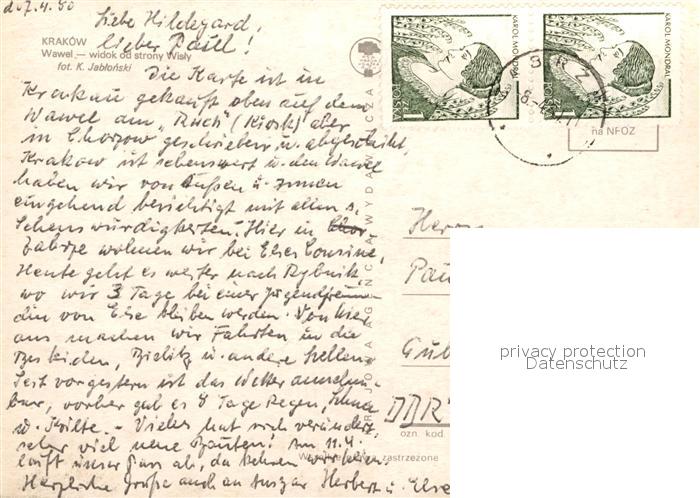 d. 7.4.80
Liebe Hildegard,
lieber Paul!
KRAKÓW
Wawel — widok od strony Wisły
fot. K. Jabłoński
Die Karte ist in
Krakau gekauft oben auf dem
Wawel am „Ruch" (Kiosk) aber
in Chorzow geschrieben u. abgeschickt,
Krakow ist sehenswert u. den Wawel
haben wir von Außen u. Innen
eingehend besichtigt mit allen s.
Sehenswürdigkeiten. Hier in
Zabrze wohnen wir bei Elses Cousine,
Heute geht es weiter nach Rybnik,
wo wir 3 Tage bei einer Jugendfreun-
din von Else bleiben werden. Von hier
aus machen wir Fahrten in die
Beskiden, Bielitz u. andere Stellen.
Seit vorgestern ist das Wetter annehm-
bar, vorher gab es 8 Tage Regen, Schnee
u. Kälte. - Vieles hat sich verändert,
sehr viel neue Bauten! Am 11.4.
läuft unser Pass ab, da kehren wir heim.
Herzliche Grüße auch an Herbert u. Else
KAROL MONDRAL
KAROL MONDRAL
na NFOZ
Herrn
Pau
Gub
DDR
ozn. kod.
zastrzeżone
privacy protection
Datenschutz